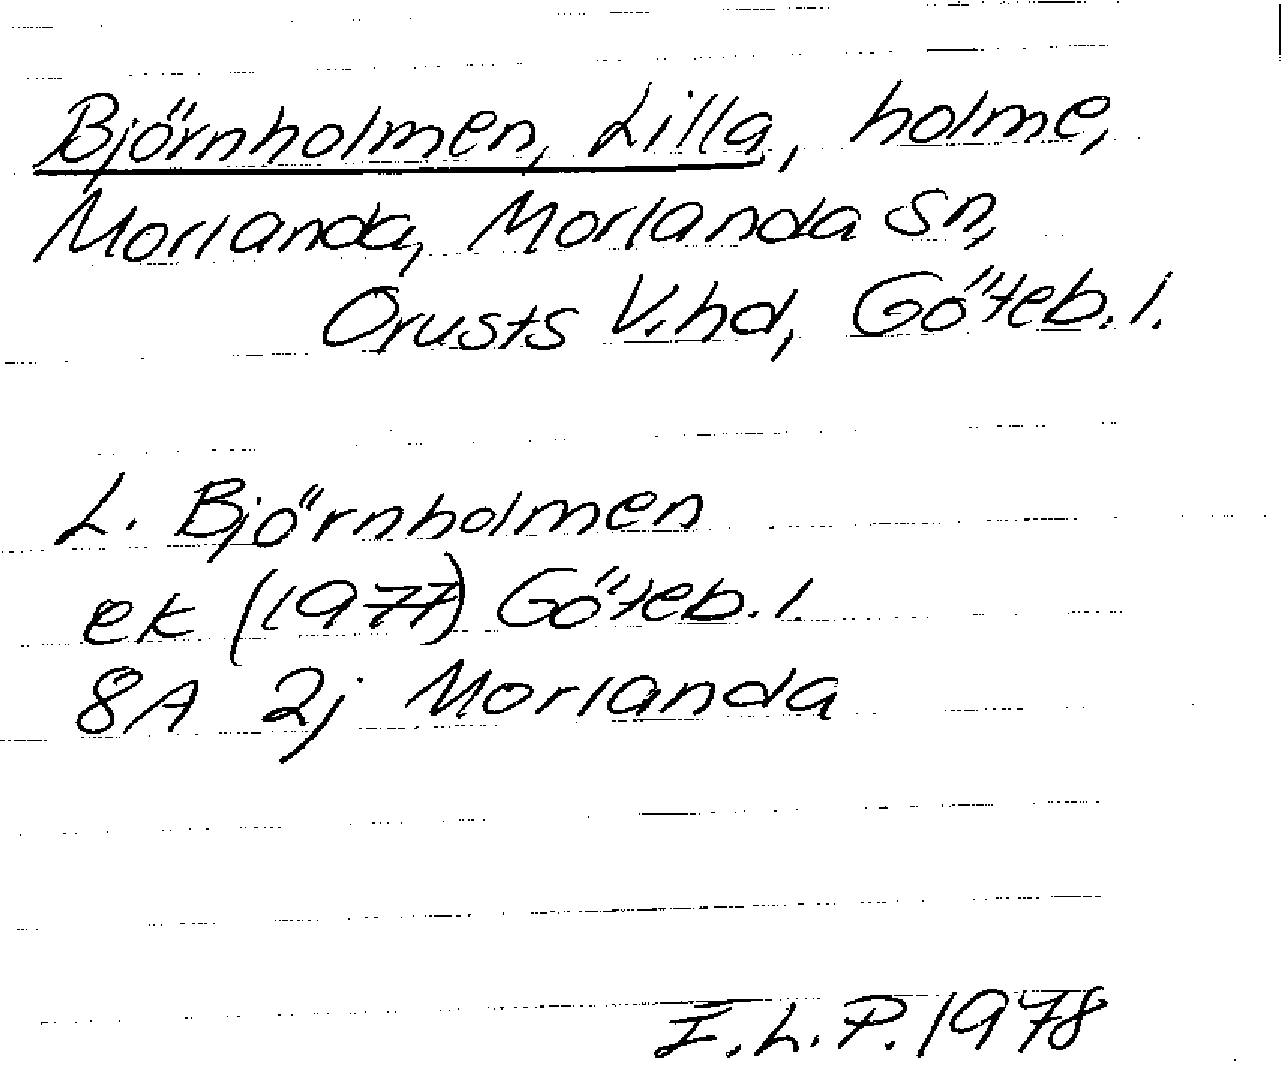 Björnholmen, Lilla, holme,
Morlanda, Morlanda sn,
Orusts V.hd, Göteb.l.
L. Björnholmen
ek (1977) Göteb.l.
8A 2j Morlanda
I.L.P. 1978